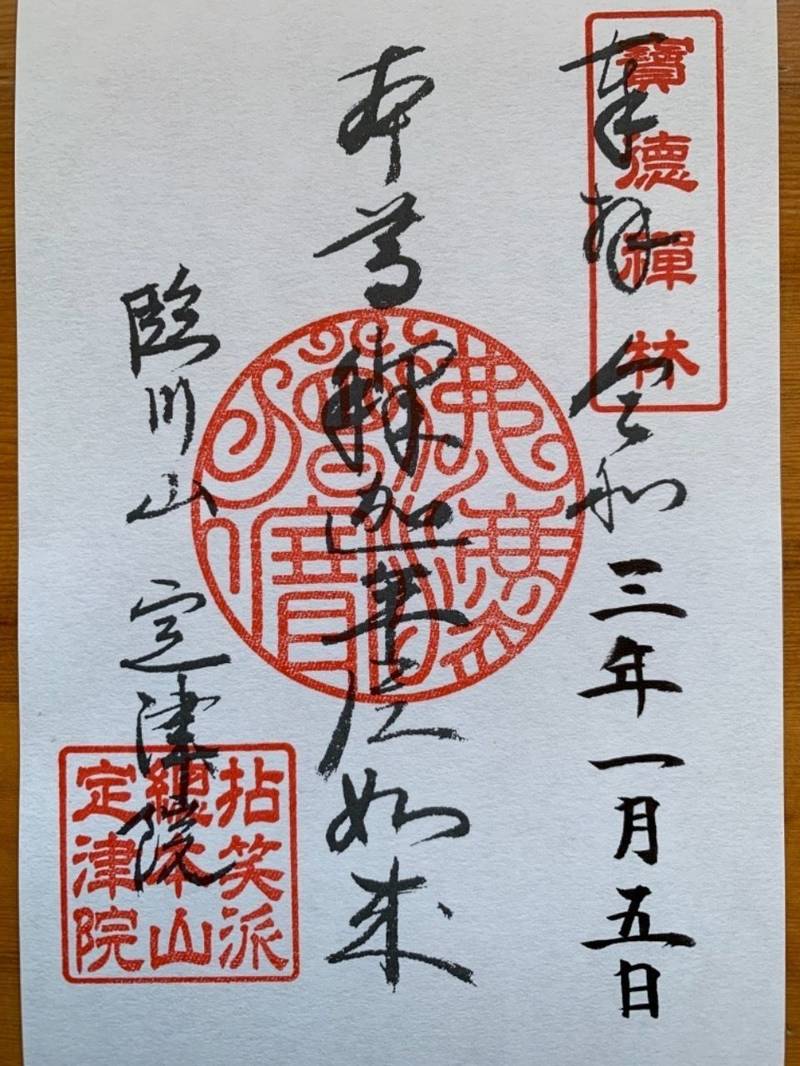 寶德禪林
奉拝 令和三年一月五日
本尊 釋迦牟尼如来
臨川山 定津院
拈笑派
總本山
定津院